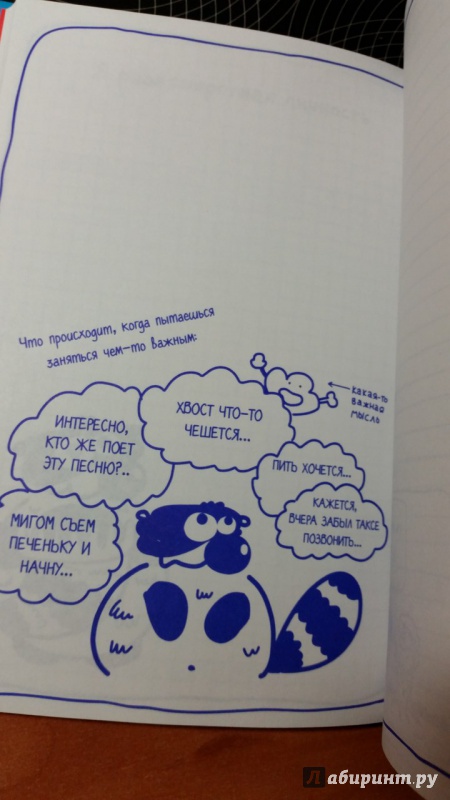 Что происходит, когда пытаешься
заняться чем-то важным:
какая-то
важная
мысль
ХВОСТ ЧТО-ТО
ЧЕШЕТСЯ...
ИНТЕРЕСНО,
КТО ЖЕ ПОЕТ
ЭТУ ПЕСНЮ?..
ПИТЬ ХОЧЕТСЯ...
КАЖЕТСЯ,
ВЧЕРА ЗАБЫЛ ТАКСЕ
ПОЗВОНИТЬ...
МИГОМ СЪЕМ
ПЕЧЕНЬКУ И
НАЧНУ...
Лабиринт.ру